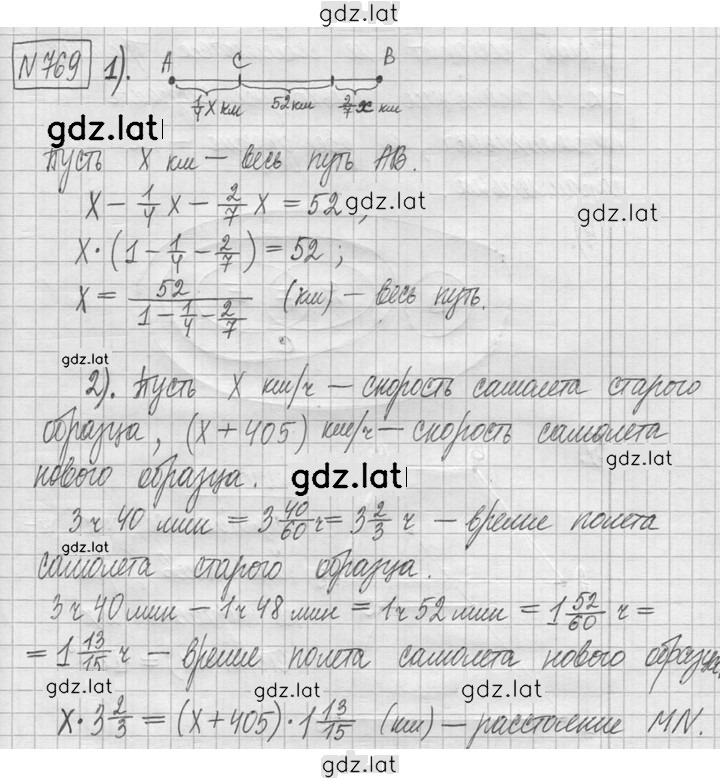 gdz.lat
N 769 1).
A C B
1/4 x км 52 км 2/7 x км
gdz.lat
Пусть x км – весь путь AB.
x – 1/4 x – 2/7 x = 52 ;
gdz.lat
gdz.lat
x · (1 – 1/4 – 2/7) = 52 ;
x = 52 / (1 – 1/4 – 2/7) (км) – весь путь.
gdz.lat
2). Пусть x км/ч – скорость самолета старого
образца, (x + 405) км/ч – скорость самолета
gdz.lat
нового образца.
gdz.lat
3 ч 40 мин = 3 40/60 ч = 3 2/3 ч – время полета
gdz.lat
самолета старого образца.
3 ч 40 мин – 1 ч 48 мин = 1 ч 52 мин = 1 52/60 ч =
= 1 13/15 ч – время полета самолета нового образца.
gdz.lat gdz.lat gdz.lat
x · 3 2/3 = (x + 405) · 1 13/15 (км) – расстояние MN.
gdz.lat